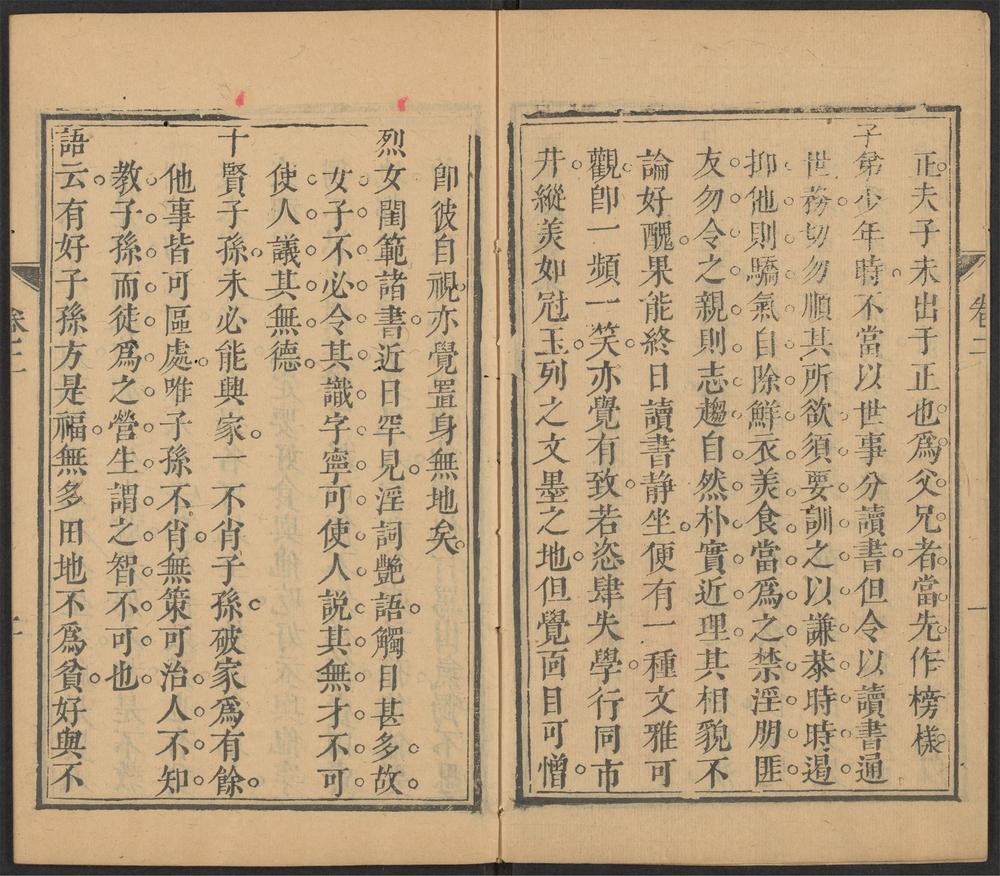 正夫子未出于正也爲父兄者當先作榜樣
子弟少年時不當以世事分讀書但令以讀書通
世務切勿順其所欲須要訓之以謙恭時時遏
抑他則驕氣自除鮮衣美食當爲之禁淫朋匪
友勿令之親則志趨自然朴實近理其相貌不
論好醜果能終日讀書静坐便有一種文雅可
觀卽一頻一笑亦覺有致若恣肆失學行同市
井縱美如冠玉列之文墨之地但覺面目可憎
卷二
一
卽彼自視亦覺置身無地矣
烈女閨範諸書近日罕見淫詞艷語觸目甚多故
女子不必令其識字寧可使人説其無才不可
使人議其無德
十賢子孫未必能興家一不肖子孫破家爲有餘
他事皆可區處唯子孫不肖無策可治人不知
教子孫而徒爲之營生謂之智不可也
語云有好子孫方是福無多田地不爲貧好與不